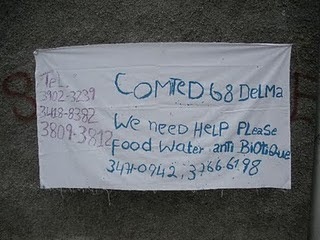 TEL.
3902-3239
3418-8382
3809-3812
COMTED 68 DELMA
We need HELP PLease
Food Water anti BiOtiQue
3471-0742, 3766.61.98